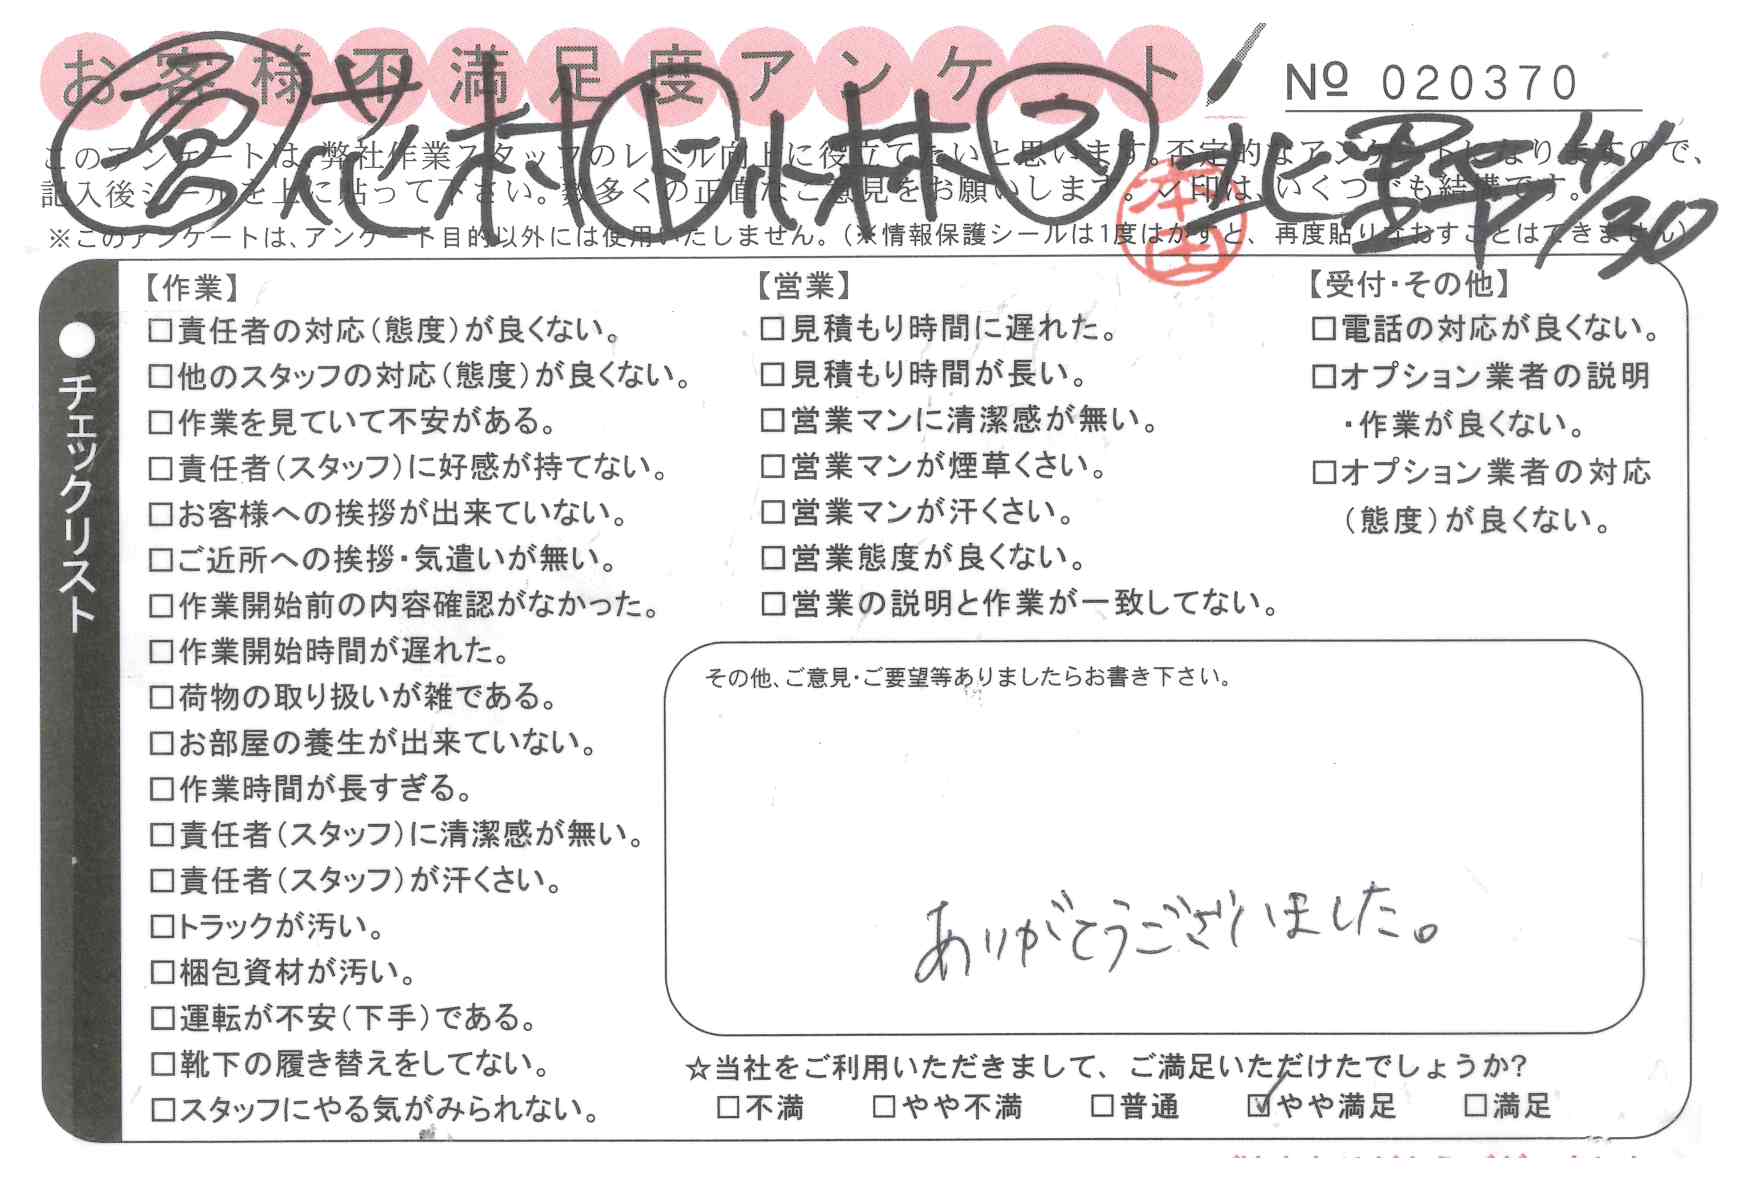 お客様不満足度アンケート
№ 020370
このアンケートは、弊社作業スタッフのレベル向上に役立てたいと思います。不定的なアンケートになりますので、
記入後シールを上に貼って下さい。数多くの正直なご意見をお願いします。レ印は、いくつでも結構です。
※このアンケートは、アンケート目的以外には使用いたしません。(※情報保護シールは1度はがすと、再度貼りなおすことはできません)
村 ト 小林 ス 北野 11/30
本田
●チェックリスト
【作業】
□責任者の対応(態度)が良くない。
□他のスタッフの対応(態度)が良くない。
□作業を見ていて不安がある。
□責任者(スタッフ)に好感が持てない。
□お客様への挨拶が出来ていない。
□ご近所への挨拶・気遣いが無い。
□作業開始前の内容確認がなかった。
□作業開始時間が遅れた。
□荷物の取り扱いが雑である。
□お部屋の養生が出来ていない。
□作業時間が長すぎる。
□責任者(スタッフ)に清潔感が無い。
□責任者(スタッフ)が汗くさい。
□トラックが汚い。
□梱包資材が汚い。
□運転が不安(下手)である。
□靴下の履き替えをしてない。
□スタッフにやる気がみられない。
【営業】
□見積もり時間に遅れた。
□見積もり時間が長い。
□営業マンに清潔感が無い。
□営業マンが煙草くさい。
□営業マンが汗くさい。
□営業態度が良くない。
□営業の説明と作業が一致してない。
【受付・その他】
□電話の対応が良くない。
□オプション業者の説明
・作業が良くない。
□オプション業者の対応
(態度)が良くない。
その他、ご意見・ご要望等ありましたらお書き下さい。
ありがとうございました。
☆当社をご利用いただきまして、ご満足いただけたでしょうか?
□不満 □やや不満 □普通 ☑やや満足 □満足